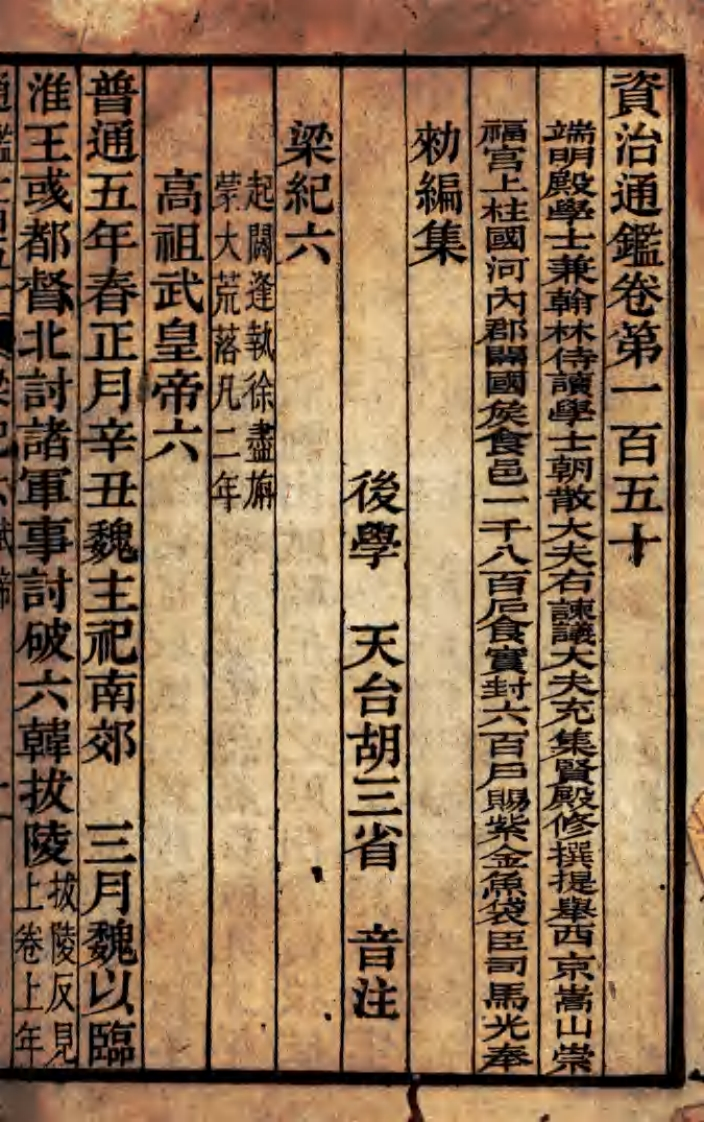 資治通鑑卷第一百五十
端明殿學士兼翰林侍讀學士朝散大夫右諫議大夫充集賢殿修撰提舉西京嵩山崇
福宮上柱國河內郡開國矦食邑一千八百戶食實封六百戶賜紫金魚袋臣司馬光奉
勑編集
後學 天台胡三省 音注
梁紀六
起閼逢執徐盡旃
蒙大荒落凡二年
高祖武皇帝六
普通五年春正月辛丑魏主祀南郊 三月魏以臨
淮王彧都督北討諸軍事討破六韓拔陵
拔陵反見
上卷上年